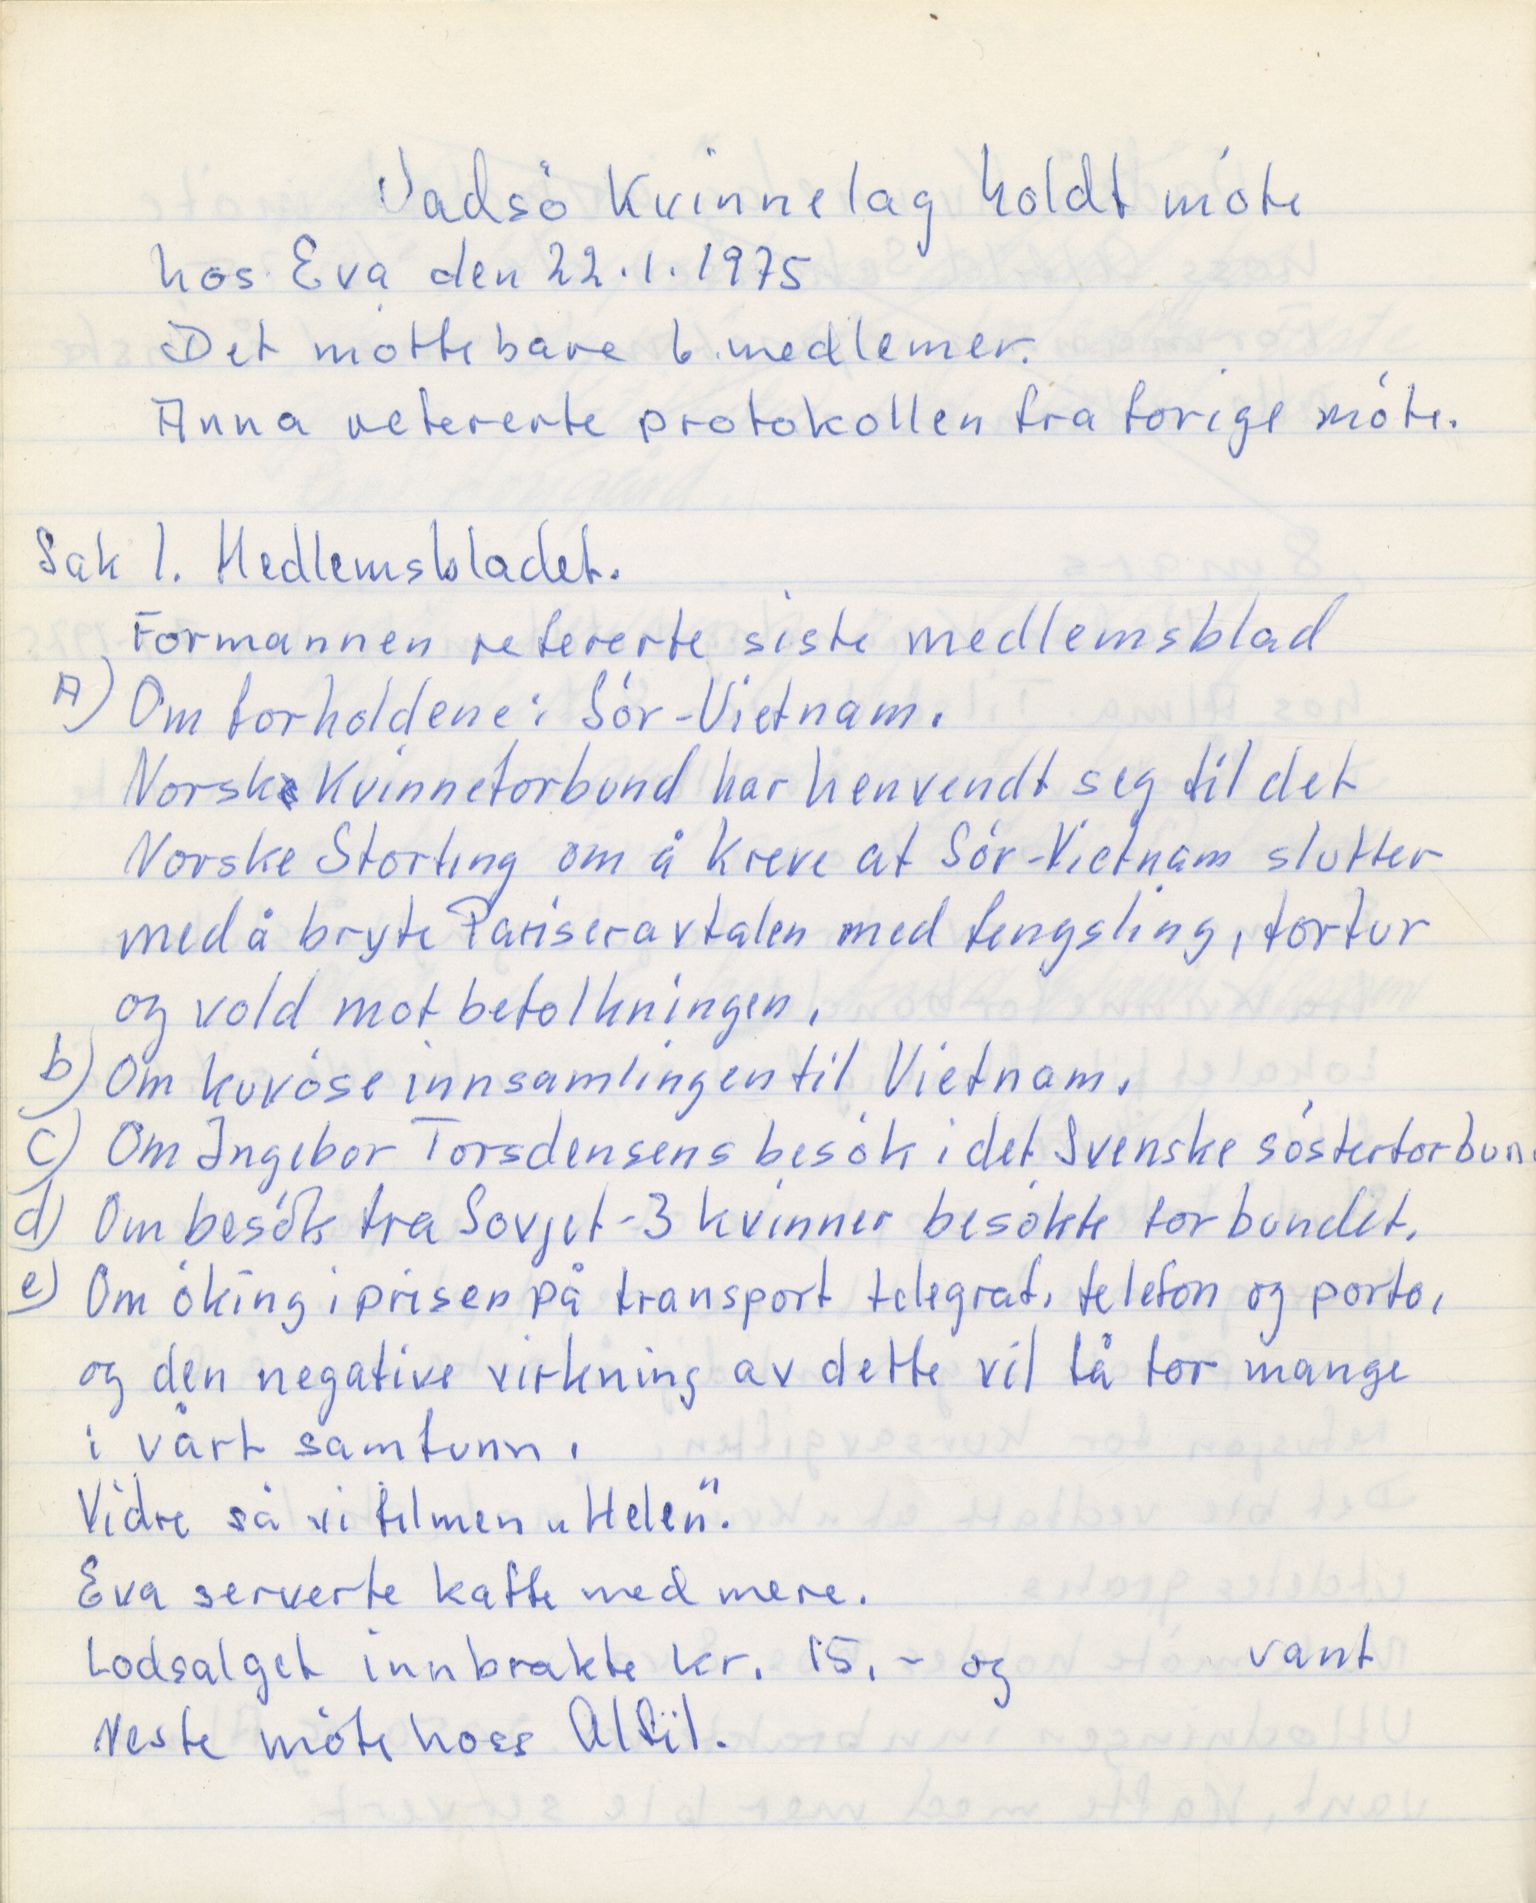 Vadsö Kvinnelag holdt möte
hos Eva den 22.1.1975
Det møtte bare 6 medlemer.
Anna refererte protokollen fra forige möte.
Sak 1. Medlemsbladet.
Formannen refererte siste medlemsblad
A) Om forholdene i Sör-Vietnam.
Norsk Kvinneforbund har henvendt seg til det
Norske Storting om å kreve at Sör-Vietnam slutter
med å bryte Pariseravtalen med fengsling, tortur
og vold mot befolkningen.
b) Om kuvöse innsamlingen til Vietnam.
c) Om Ingebor Torsdensens besök i det Svenske sösterforbun
d) Om besök fra Sovjet - 3 kvinner besökte forbundet.
e) Om öking i prisen på transport telegraf, telefon og porto,
og den negative virkning av dette vil få for mange
i vårt samfunn.
Vidre så vi filmen „Helen".
Eva serverte kaffe med mere.
Lodsalget innbrakte kr. 15,- og vant
Neste möte hoss Alfil.